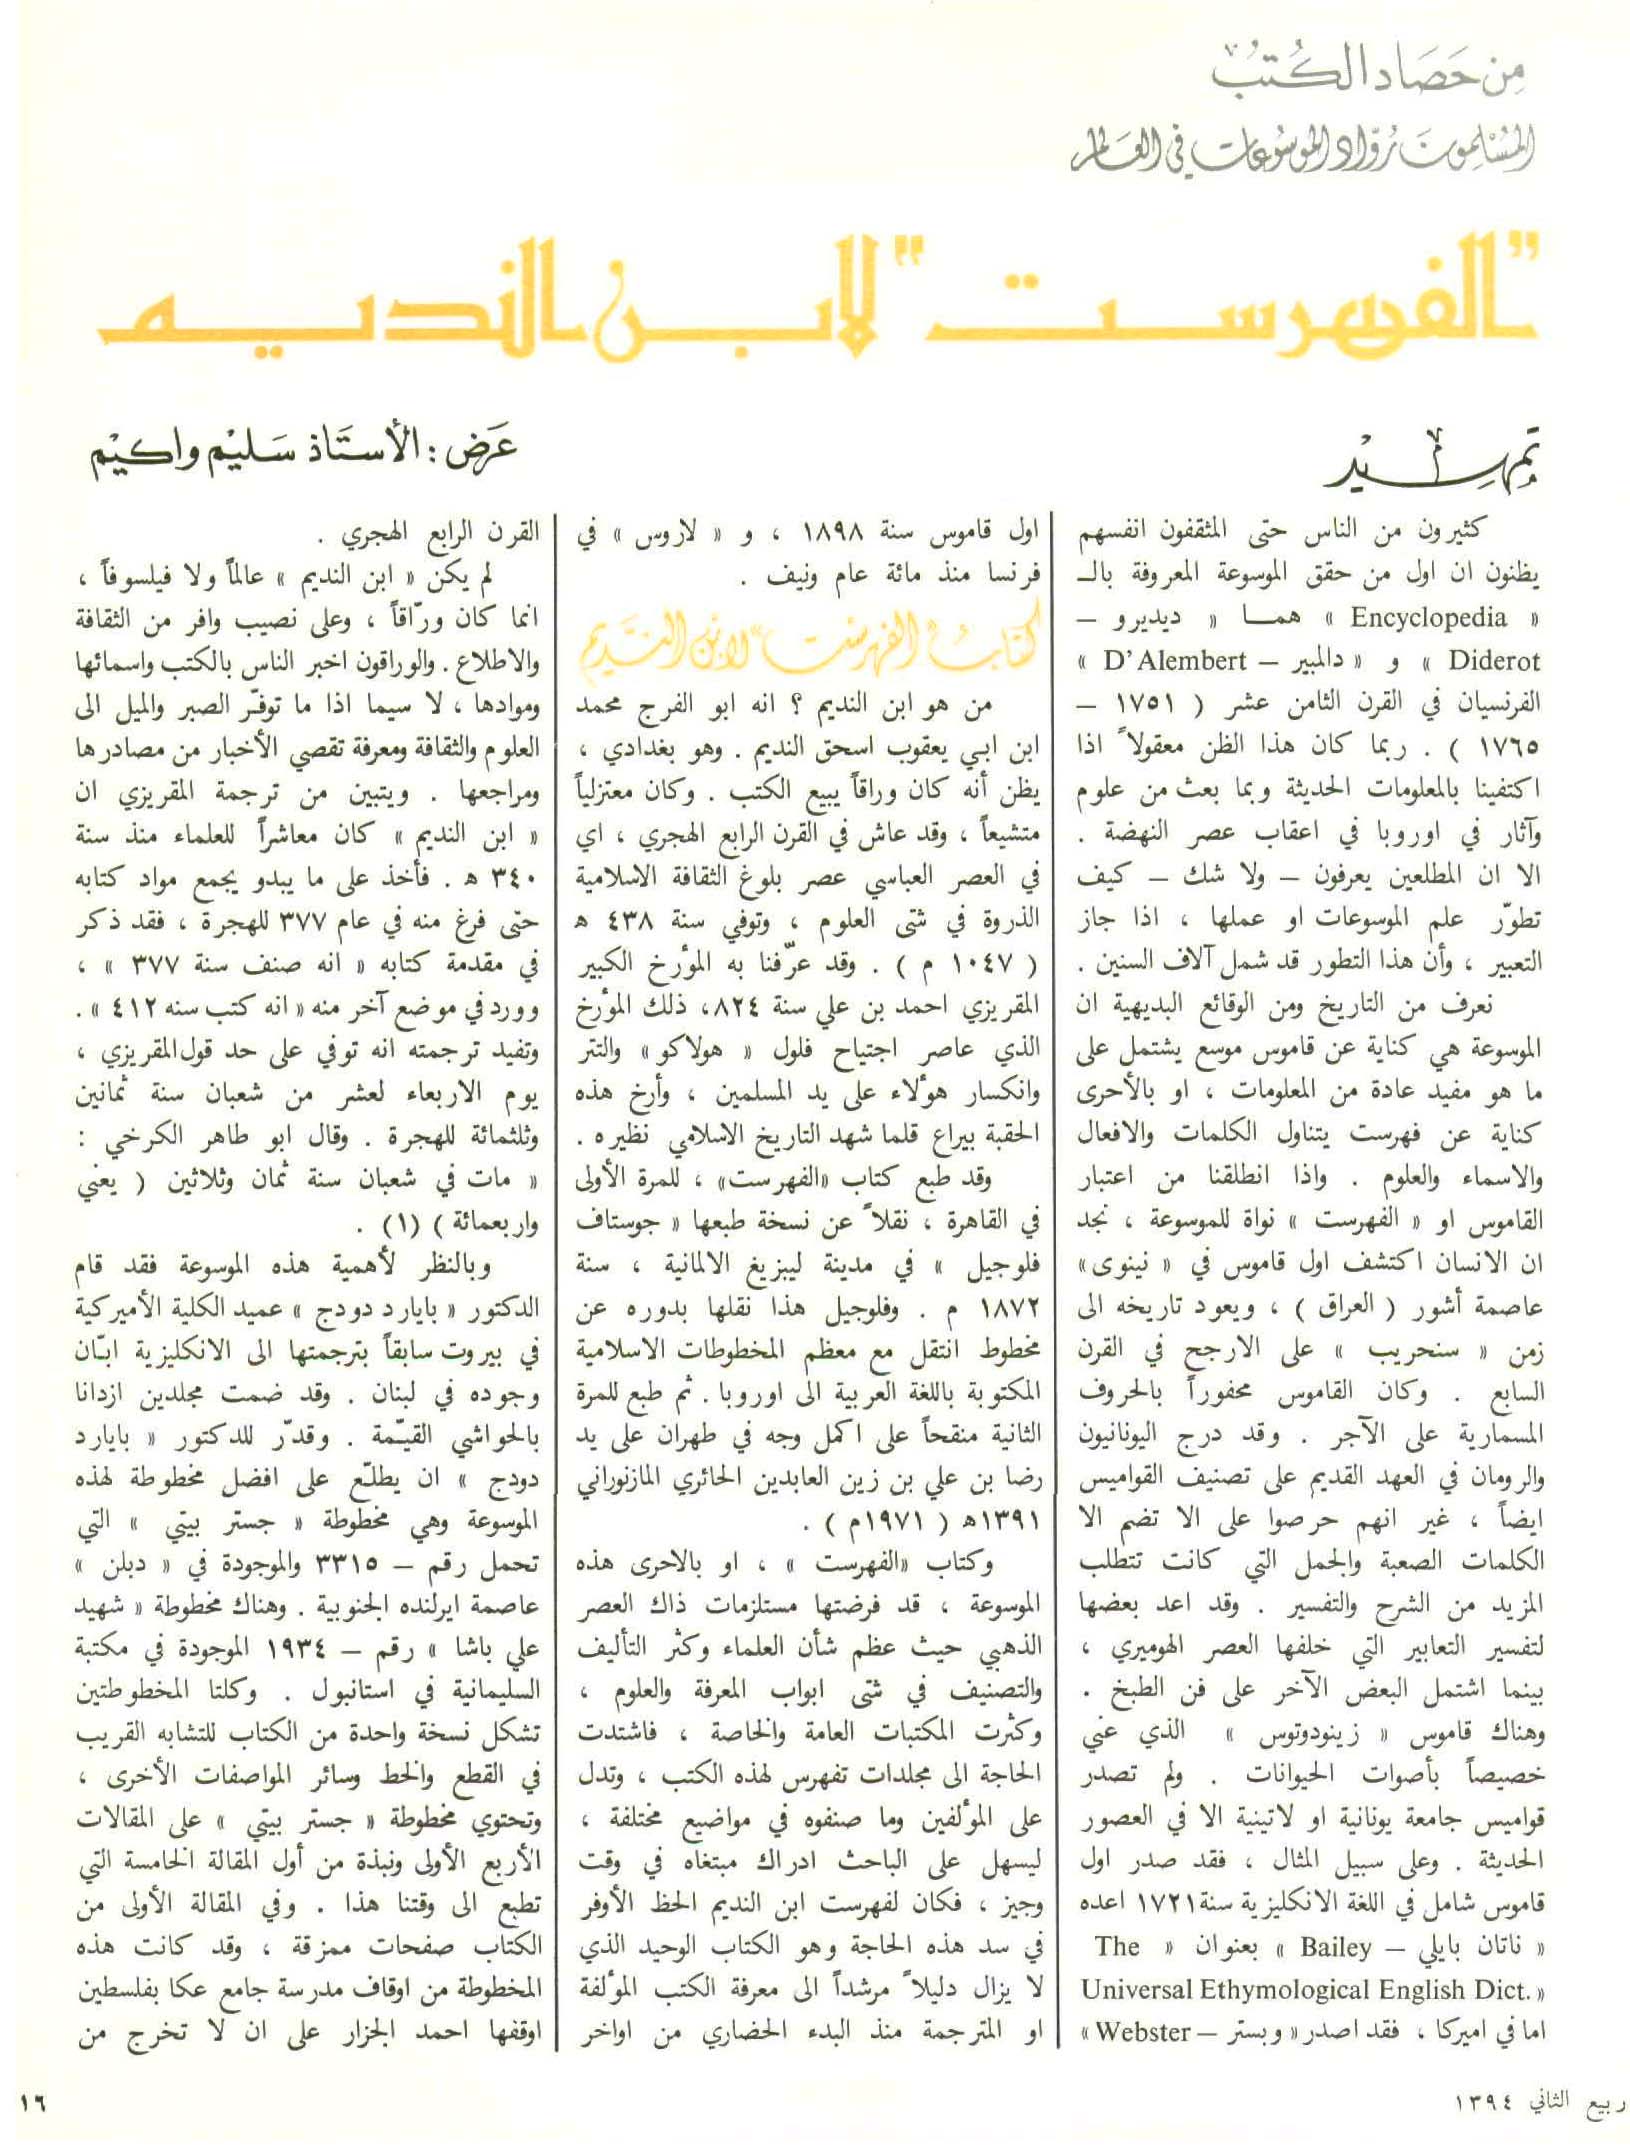 من حصاد الكتب
المسلمون روّاد الموسوعات في العالم
"الفهرست" لابن النديم
عرض : الأستاذ سليم واكيم
تمهيد
كثيرون من الناس حتى المثقفون انفسهم
يظنون ان اول من حقق الموسوعة المعروفة بالـ
« Encyclopedia » همـا « ديديرو –
Diderot » و «دالمبير – D'Alembert »
الفرنسيان في القرن الثامن عشر ( ١٧٥١ –
١٧٦٥ ) . ربما كان هذا الظن معقولاً اذا
اكتفينا بالمعلومات الحديثة وبما بعث من علوم
وآثار في اوروبا في اعقاب عصر النهضة .
الا ان المطلعين يعرفون – ولا شك – كيف
تطوّر علم الموسوعات او عملها ، اذا جاز
التعبير ، وأن هذا التطور قد شمل آلاف السنين .
نعرف من التاريخ ومن الوقائع البديهية ان
الموسوعة هي كناية عن قاموس موسع يشتمل على
ما هو مفيد عادة من المعلومات ، او بالأحرى
كناية عن فهرست يتناول الكلمات والافعال
والاسماء والعلوم . واذا انطلقنا من اعتبار
القاموس او « الفهرست » نواة للموسوعة ، نجد
ان الانسان اكتشف اول قاموس في « نينوى»
عاصمة أشور ( العراق ) ، ويعود تاريخه الى
زمن « سنحريب » على الارجح في القرن
السابع . وكان القاموس محفوراً بالحروف
المسمارية على الآجر . وقد درج اليونانيون
والرومان في العهد القديم على تصنيف القواميس
ايضاً ، غير انهم حرصوا على الا تضم الا
الكلمات الصعبة والجمل التي كانت تتطلب
المزيد من الشرح والتفسير . وقد اعد بعضها
لتفسير التعابير التي خلفها العصر الهوميري ،
بينما اشتمل البعض الآخر على فن الطبخ .
وهناك قاموس « زينودوتوس » الذي عني
خصيصاً بأصوات الحيوانات . ولم تصدر
قواميس جامعة يونانية او لاتينية الا في العصور
الحديثة . وعلى سبيل المثال ، فقد صدر اول
قاموس شامل في اللغة الانكليزية سنة١٧٢١ اعده
« ناتان بايلي – Bailey » بعنوان « The
Universal Ethymological English Dict. »
اما في اميركا ، فقد اصدر« وبستر – Webster»
اول قاموس سنة ١٨٩٨ ، و « لاروس » في
فرنسا منذ مائة عام ونيف .
كتاب "الفهرست" لابن النديم
من هو ابن النديم ؟ انه ابو الفرج محمد
ابن ابي يعقوب اسحق النديم . وهو بغدادي ،
يظن أنه كان وراقاً يبيع الكتب . وكان معتزلياً
متشيعاً ، وقد عاش في القرن الرابع الهجري ، اي
في العصر العباسي عصر بلوغ الثقافة الاسلامية
الذروة في شتى العلوم ، وتوفي سنة ٤٣٨ ه
( ١٠٤٧ م ) . وقد عرّفنا به المؤرخ الكبير
المقريزي احمد بن علي سنة ٨٢٤، ذلك المؤرخ
الذي عاصر اجتياح فلول « هولاكو» والتتر
وانكسار هؤلاء على يد المسلمين ، وأرخ هذه
الحقبة بيراع قلما شهد التاريخ الاسلامي نظيره .
وقد طبع كتاب «الفهرست» ، للمرة الأولى
في القاهرة ، نقلاً عن نسخة طبعها « جوستاف
فلوجيل » في مدينة ليبزيغ الالمانية ، سنة
١٨٧٢ م . وفلوجيل هذا نقلها بدوره عن
مخطوط انتقل مع معظم المخطوطات الاسلامية
المكتوبة باللغة العربية الى اوروبا . ثم طبع للمرة
الثانية منقحاً على اكمل وجه في طهران على يد
رضا بن علي بن زين العابدين الحائري المازنوراني
١٣٩١ه ( ١٩٧١م ) .
وكتاب «الفهرست » ، او بالاحرى هذه
الموسوعة ، قد فرضتها مستلزمات ذاك العصر
الذهبي حيث عظم شأن العلماء وكثر التأليف
والتصنيف في شتى ابواب المعرفة والعلوم ،
وكثرت المكتبات العامة والخاصة ، فاشتدت
الحاجة الى مجلدات تفهرس لهذه الكتب ، وتدل
على المؤلفين وما صنفوه في مواضيع مختلفة ،
ليسهل على الباحث ادراك مبتغاه في وقت
وجيز ، فكان لفهرست ابن النديم الحظ الأوفر
في سد هذه الحاجة وهو الكتاب الوحيد الذي
لا يزال دليلاً مرشداً الى معرفة الكتب المؤلفة
او المترجمة منذ البدء الحضاري من اواخر
القرن الرابع الهجري .
لم يكن « ابن النديم » عالماً ولا فيلسوفاً ،
انما كان ورّاقاً ، وعلى نصيب وافر من الثقافة
والاطلاع . والوراقون اخبر الناس بالكتب واسمائها
وموادها ، لا سيما اذا ما توفّر الصبر والميل الى
العلوم والثقافة ومعرفة تقصي الأخبار من مصادرها
ومراجعها . ويتبين من ترجمة المقريزي ان
« ابن النديم » كان معاشراً للعلماء منذ سنة
٣٤٠ ه . فأخذ على ما يبدو يجمع مواد كتابه
حتى فرغ منه في عام ٣٧٧ للهجرة ، فقد ذكر
في مقدمة كتابه « انه صنف سنة ٣٧٧ » ،
وورد في موضع آخر منه « انه كتب سنه ٤١٢ » .
وتفيد ترجمته انه توفي على حد قول المقريزي ،
يوم الاربعاء لعشر من شعبان سنة ثمانين
وثلثمائة للهجرة . وقال ابو طاهر الكرخي :
« مات في شعبان سنة ثمان وثلاثين ( يعني
واربعمائة ) (١) .
وبالنظر لأهمية هذه الموسوعة فقد قام
الدكتور « بايارد دودج » عميد الكلية الأميركية
في بيروت سابقاً بترجمتها الى الانكليزية ابّان
وجوده في لبنان . وقد ضمت مجلدين ازدانا
بالحواشي القيّمة . وقدّر للدكتور « بايارد
دودج » ان يطلّع على افضل مخطوطة لهذه
الموسوعة وهي مخطوطة « جستر بيتي » التي
تحمل رقم – ٣٣١٥ والموجودة في « دبلن »
عاصمة ايرلنده الجنوبية . وهناك مخطوطة « شهيد
علي باشا » رقم – ١٩٣٤ الموجودة في مكتبة
السليمانية في استانبول . وكلتا المخطوطتين
تشكل نسخة واحدة من الكتاب للتشابه القريب
في القطع والخط وسائر المواصفات الأخرى ،
وتحتوي مخطوطة « جستر بيتي » على المقالات
الأربع الأولى ونبذة من أول المقالة الخامسة التي
تطبع الى وقتنا هذا . وفي المقالة الأولى من
الكتاب صفحات ممزقة ، وقد كانت هذه
المخطوطة من اوقاف مدرسة جامع عكا بفلسطين
اوقفها احمد الجزار على ان لا تخرج من
ربيع الثاني ١٣٩٤
١٦